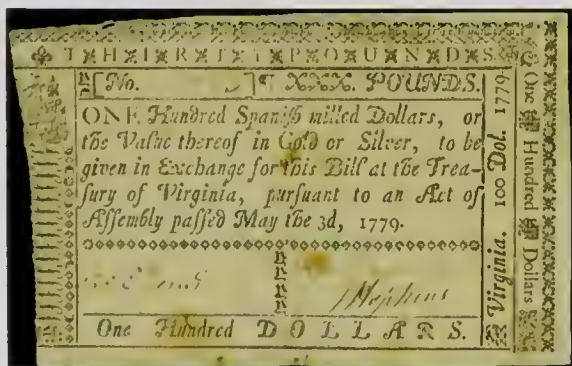 THIRTY POUNDS
No. ¶ XXX. POUNDS.
ONE Hundred Spaniſh milled Dollars, or
the Value thereof in Gold or Silver, to be
given in Exchange for this Bill at the Trea-
ſury of Virginia, purſuant to an Act of
Aſſembly paſſed May the 3d, 1779.
J Hopkins
One Hundred DOLLARS.
Virginia. 100 Dol. 1779.
One Hundred Dollars